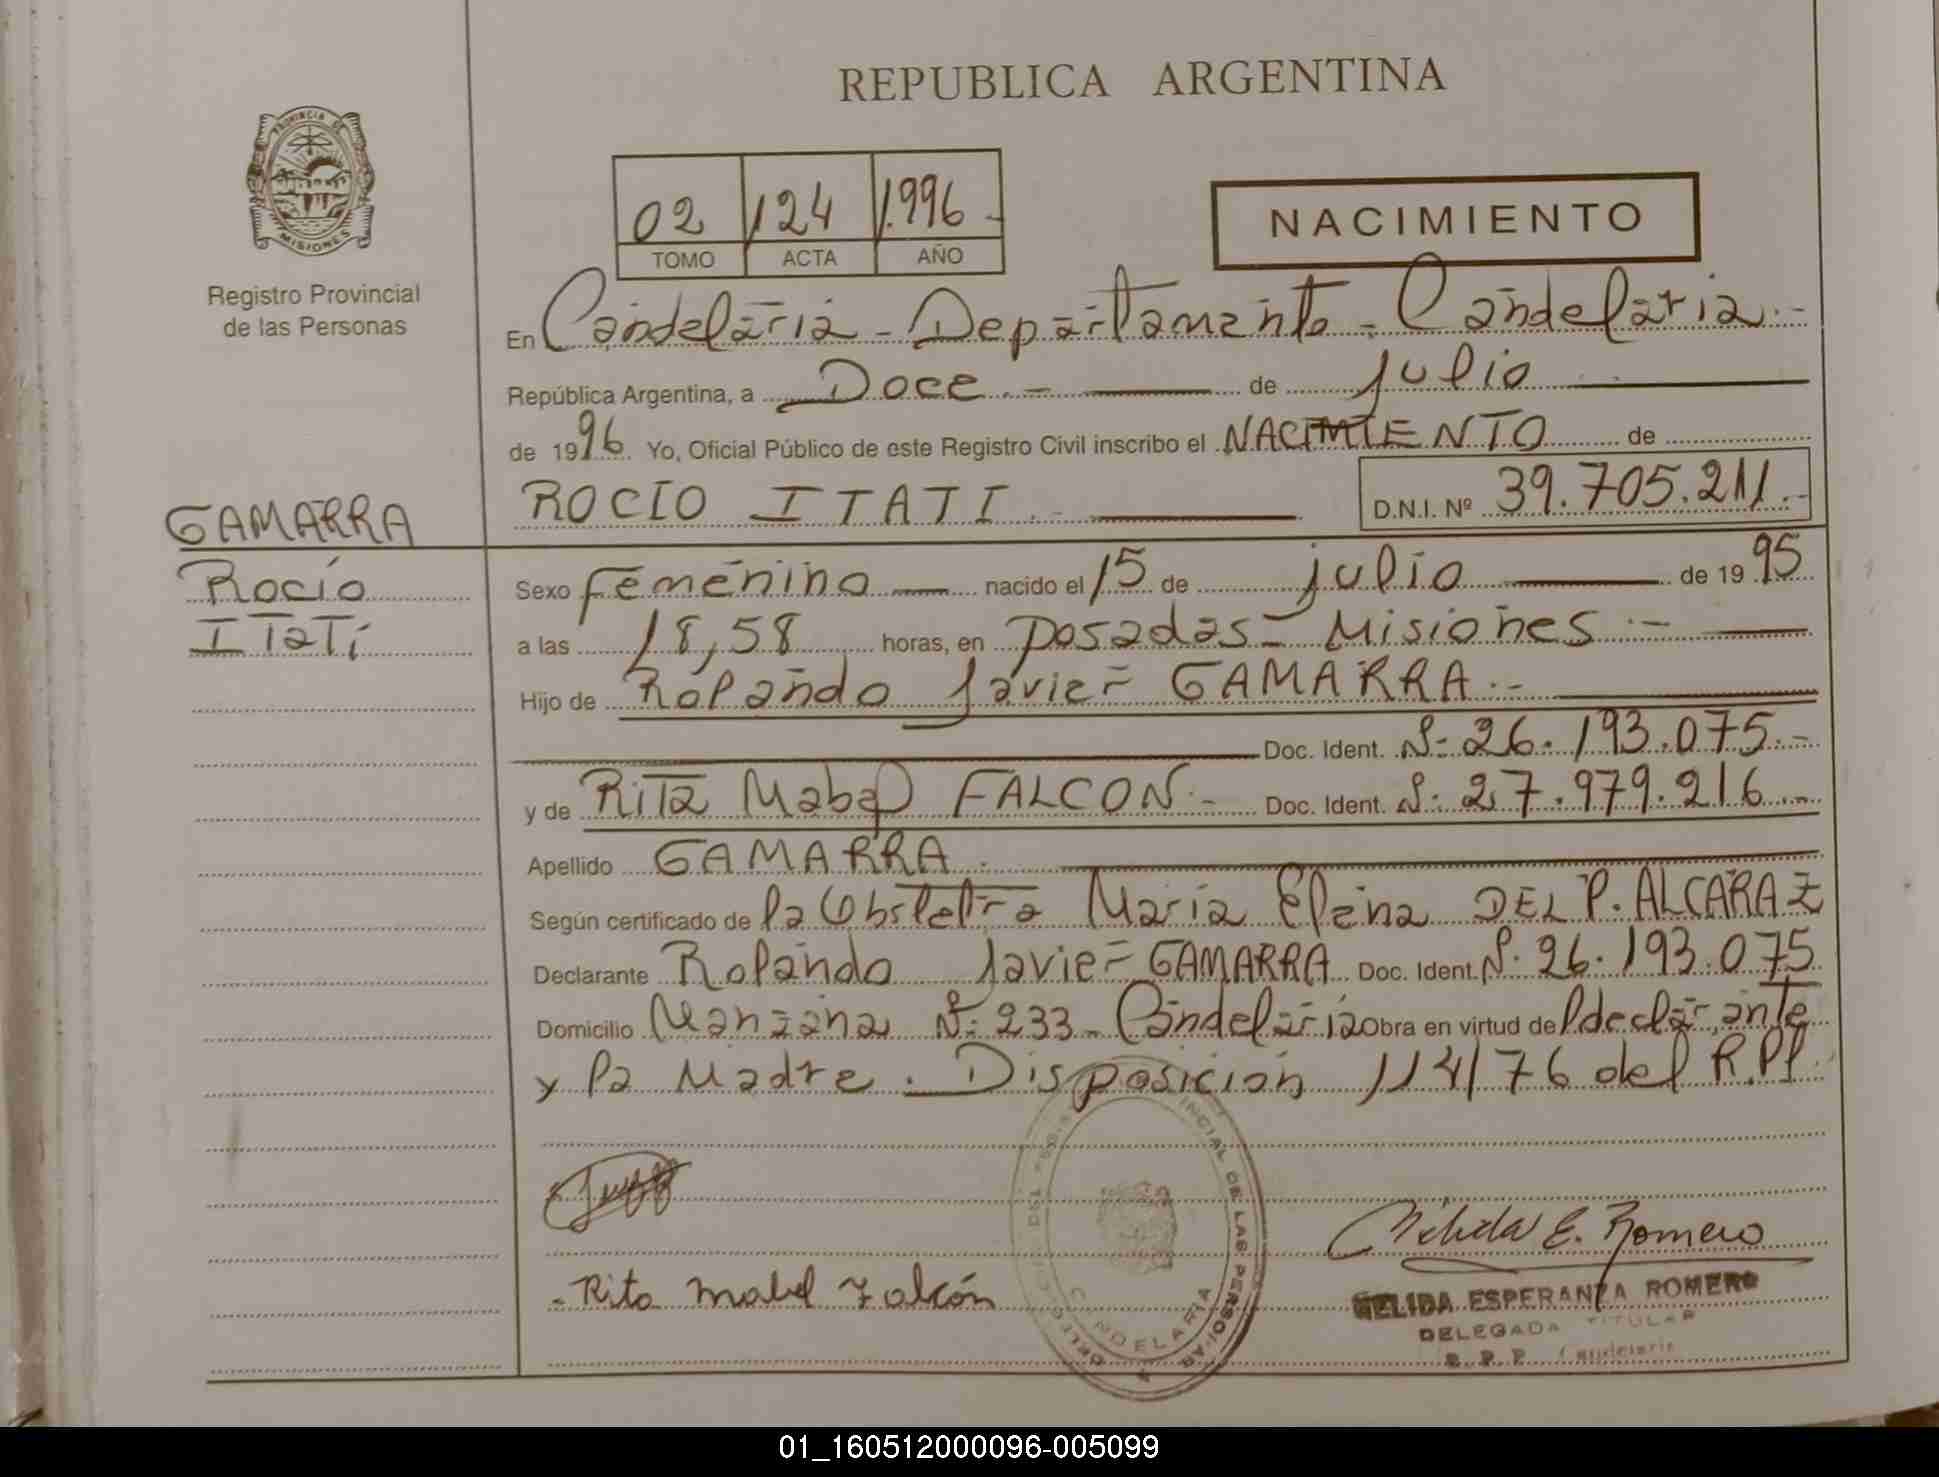 REPUBLICA ARGENTINA
PROVINCIA DE
MISIONES
Registro Provincial
de las Personas
02 124 1.996.-
TOMO ACTA AÑO
NACIMIENTO
En Candelaria - Departamento - Candelaria.-
República Argentina, a Doce.- de julio
de 1996. Yo, Oficial Público de este Registro Civil inscribo el NACIMIENTO de
ROCIO ITATI.
D.N.I. Nº 39.705.211.-
GAMARRA
Rocío
ITatí
Sexo Femenino nacido el 15 de julio de 1995
a las 18,58 horas, en Posadas - Misiones.-
Hijo de Rolando Javier GAMARRA.-
Doc. Ident. Nº 26.193.075.-
y de Rita Mabel FALCON.- Doc. Ident. Nº 27.979.216.-
Apellido GAMARRA.
Según certificado de la Obstetra Maria Elena DEL P. ALCARAZ
Declarante Rolando Javier GAMARRA Doc. Ident. Nº 26.193.075
Domicilio Manzana Nº 233 - Candelaria obra en virtud del declarante
y la Madre. Disposición 114/76 del R.PP.
Nélida E. Romero
Rita Mabel Falcón
NELIDA ESPERANZA ROMERO
DELEGADA TITULAR
R. P. P. Candelaria
DE LAS PERSONAS
CANDELARIA
01_160512000096-005099